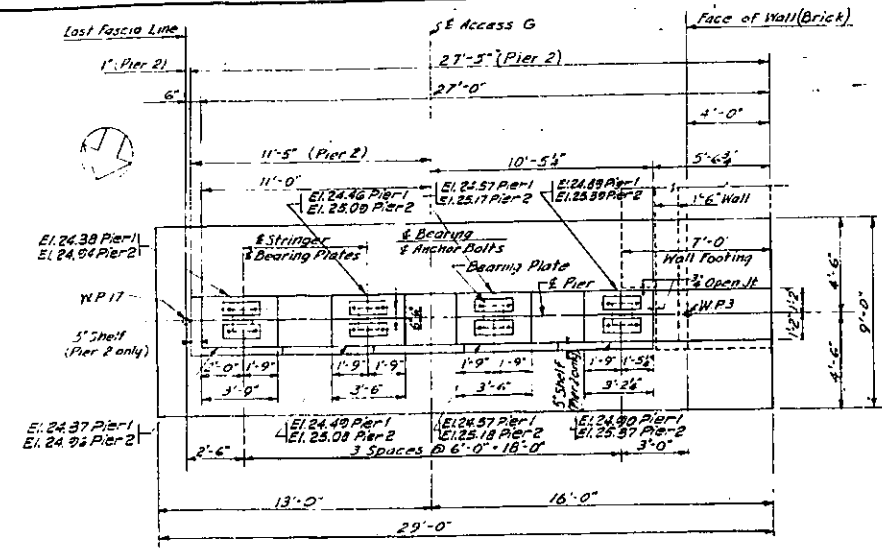 East Fascia Line
℄ Access G
Face of Wall (Brick)
1" (Pier 2)
27'-5" (Pier 2)
6"
27'-0"
4'-0"
11'-5" (Pier 2)
10'-5¼"
5'-6¾"
11'-0"
El. 24.46 Pier 1
El. 25.09 Pier 2
El. 24.57 Pier 1
El. 25.17 Pier 2
El. 24.89 Pier 1
El. 25.39 Pier 2
1'-6" Wall
El. 24.38 Pier 1
El. 24.94 Pier 2
℄ Stringer
& Bearing Plates
℄ Bearing
& Anchor Bolts
7'-0"
Wall Footing
Bearing Plate
℄ Pier
¾" Open Jt
W.P. 17
W.P. 3
5" Shelf
(Pier 2 only)
1'-2"
1'-2"
4'-6"
4'-6"
9'-0"
2'-0"
1'-9"
1'-9"
1'-9"
1'-9"
1'-9"
1'-9"
1'-5¼"
3'-9"
3'-6"
3'-6"
3'-2¼"
5" Shelf
El. 24.37 Pier 1
El. 24.96 Pier 2
El. 24.49 Pier 1
El. 25.08 Pier 2
El. 24.57 Pier 1
El. 25.18 Pier 2
El. 24.90 Pier 1
El. 25.37 Pier 2
2'-6"
3 Spaces @ 6'-0" = 18'-0"
3'-0"
13'-0"
16'-0"
29'-0"